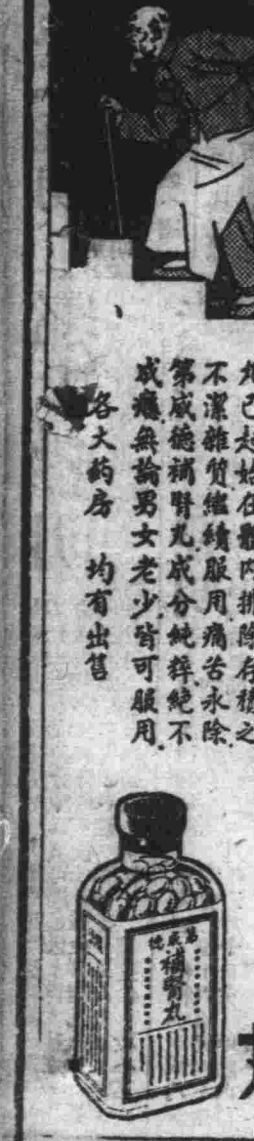 丸已起始在體內排除存積之
不潔雜質繼續服用痛苦永除
第威德補腎丸成分純粹絕不
成癮無論男女老少皆可服用
各大藥房 均有出售
第威德
補腎丸